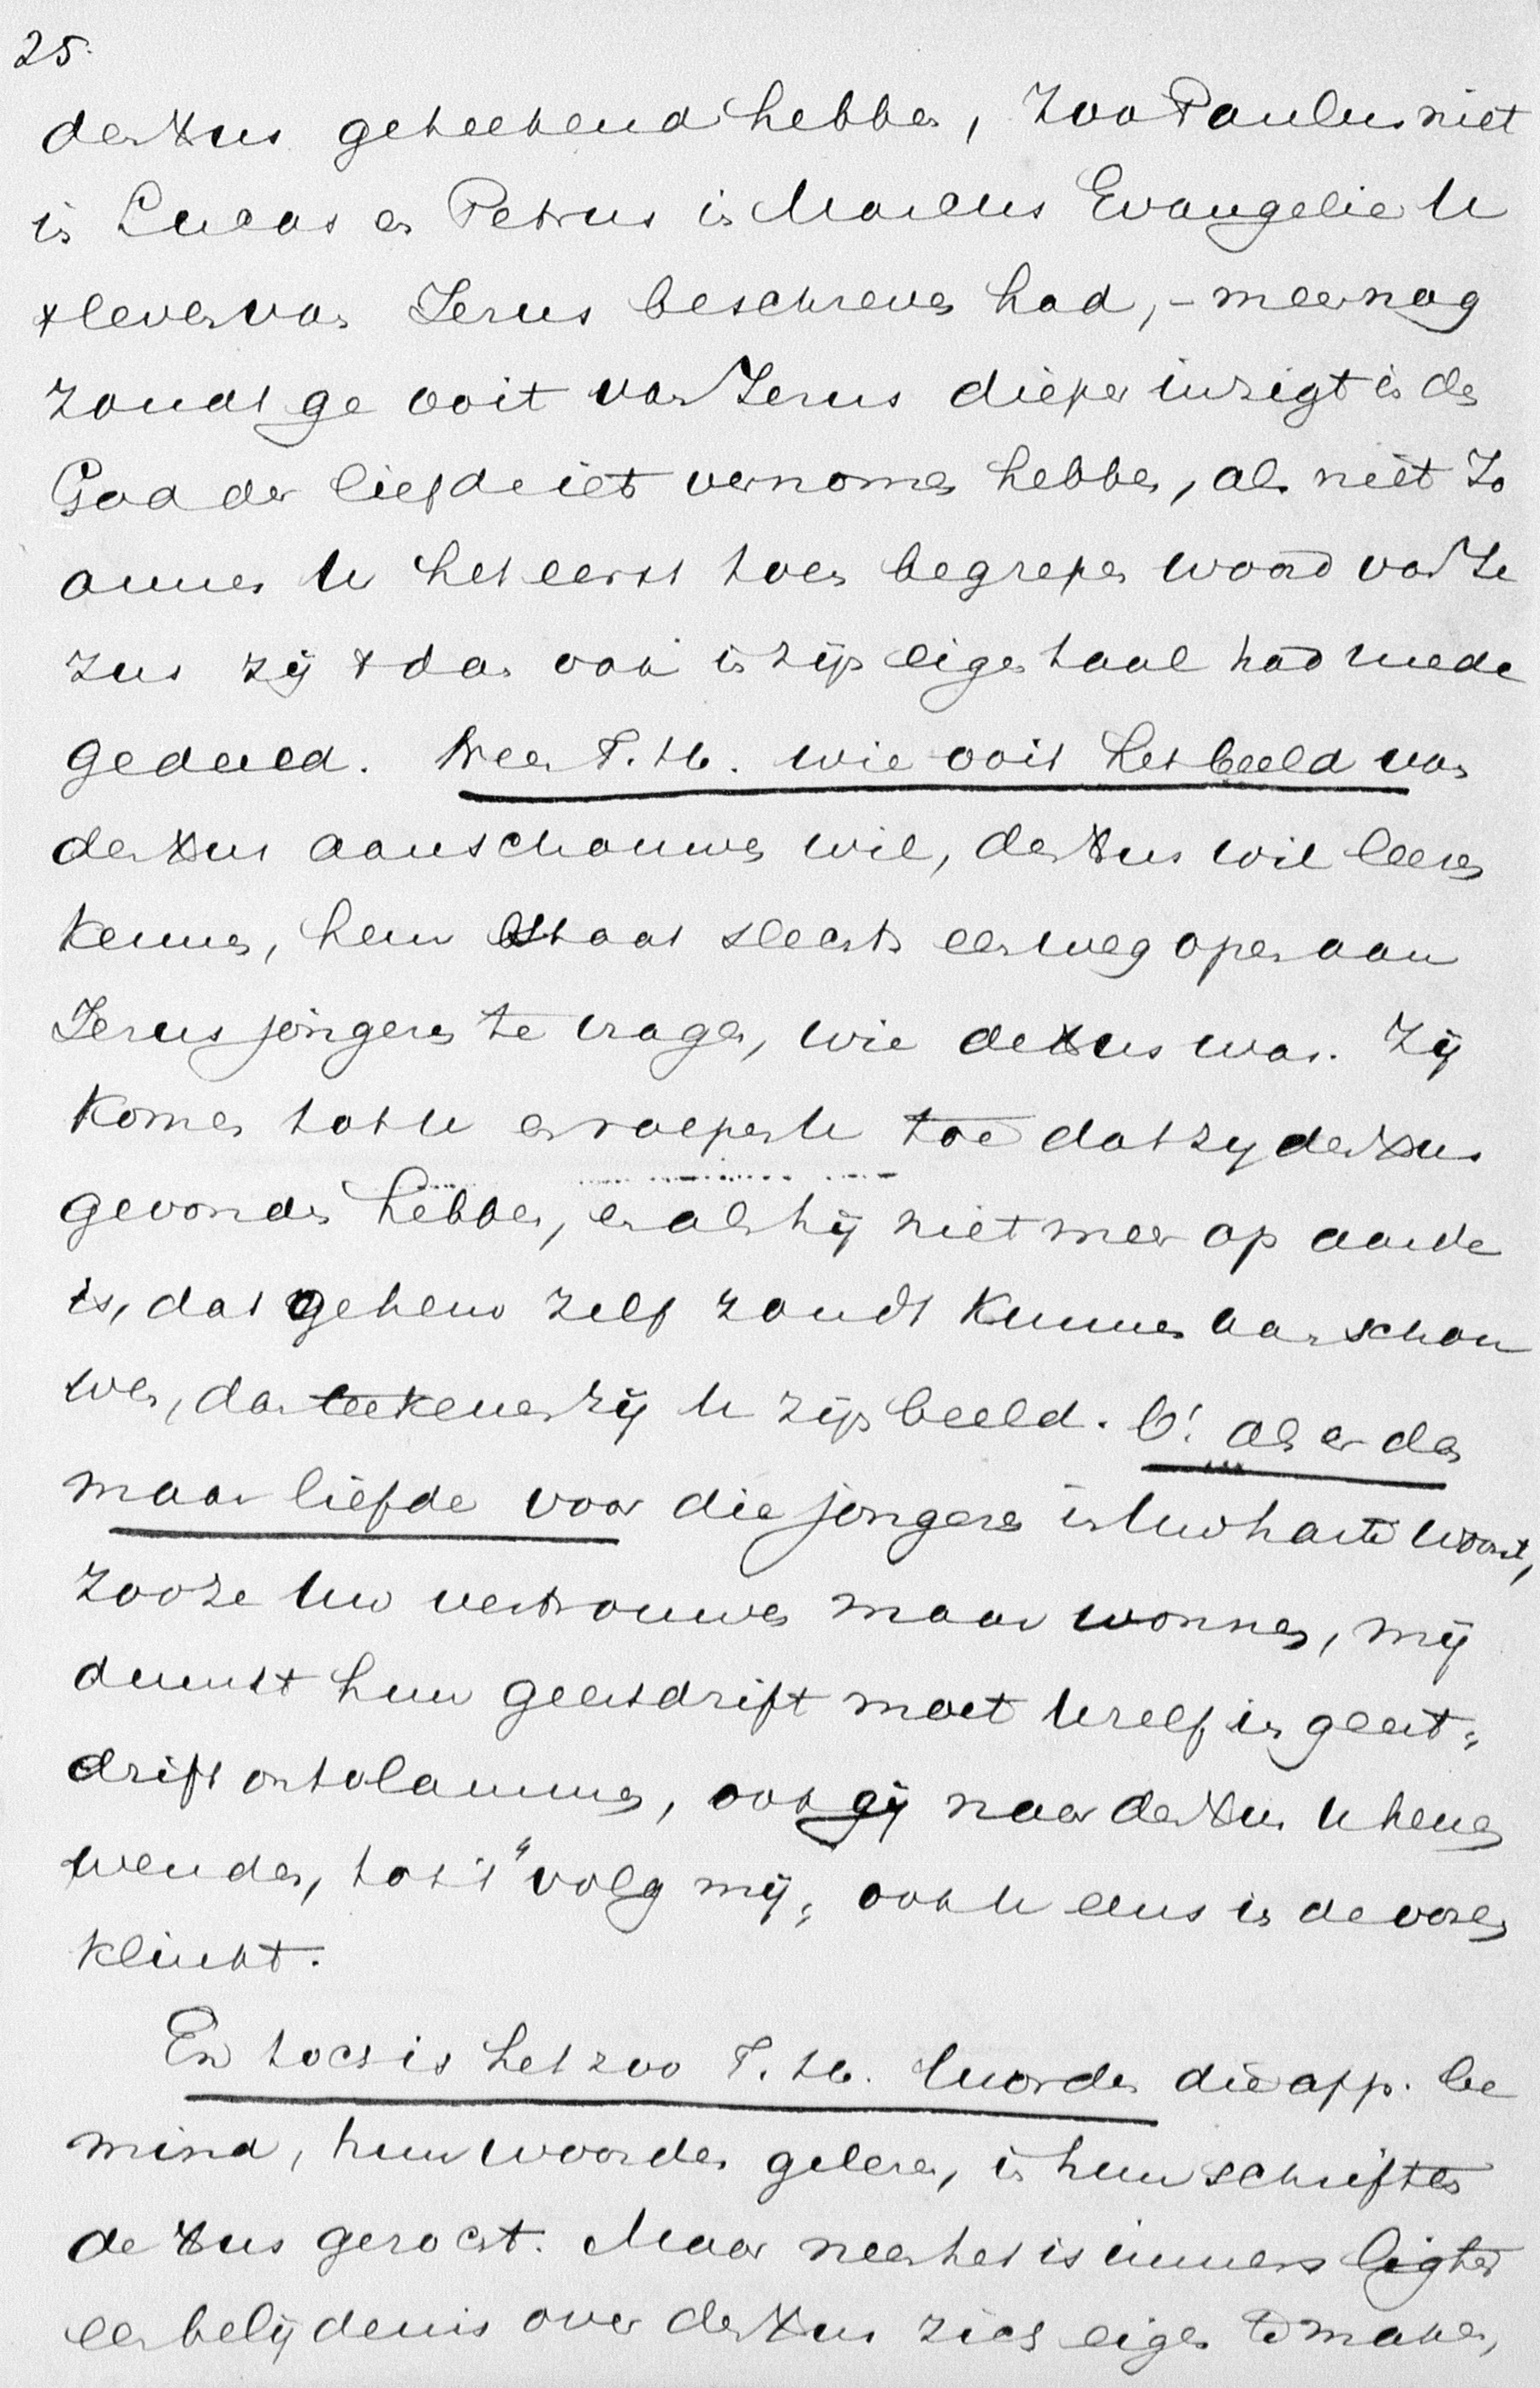 25.
den Xus geteekend hebben, zoo Paulus niet
in Lucas en Petrus in Marcus Evangelie U
't leven van Jezus beschreven had, - meer nog
zoudt ge ooit van Jezus dieper inzigt in den
God der liefde iets vernomen hebben, als niet Jo
annes U het eerst toen begrepen woord van Je
zus zij 't dan ook in zijn eigen taal had mede
gedeeld. Neen T. H. wie ooit het beeld van
den Xus aanschouwen wil, den Xus wil leeren
kennen, hem staat slechts een weg open aan
Jezus jongeren te vragen, wie de Xus was. Zij
komen tot U en roepen U toe dat zij den Xus
gevonden hebben, en als hij niet meer op aarde
is, dat ge hem zelf zoudt kunnen aanschou
wen, dan teekenen zij U zijn beeld. O! als er dan
maar liefde voor die jongeren in Uw harte woont,
zoo ze Uw vertrouwen maar wonnen, mij
dunkt hun geestdrift moet Uzelf in geest„
drift ontvlammen, ook gij naar den Xus U henen
wenden, tot 't "volg mij„ ook U eens in de ooren
klinkt.
En toch is het zoo T. H. Worden die app. be
mind, hun woorden gelezen, in hun schriften
de Xus gezocht. Maar neen het is immers ligter
een belijdenis over den Xus zich eigen te maken,